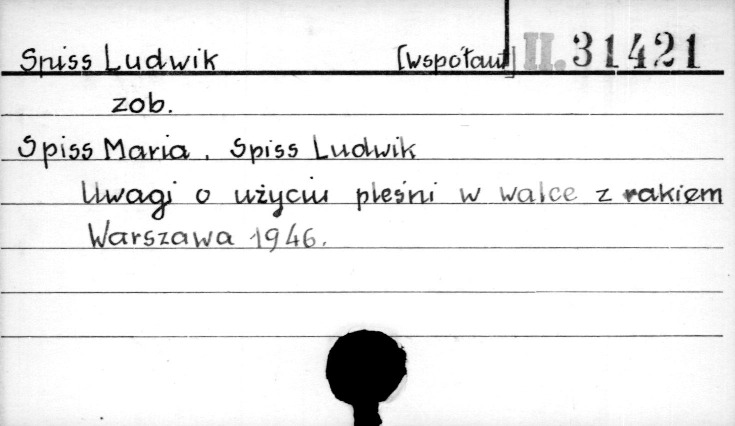 Spiss Ludwik [współaut] II.31421
zob.
Spiss Maria, Spiss Ludwik
Uwagi o użyciu pleśni w walce z rakiem
Warszawa 1946.